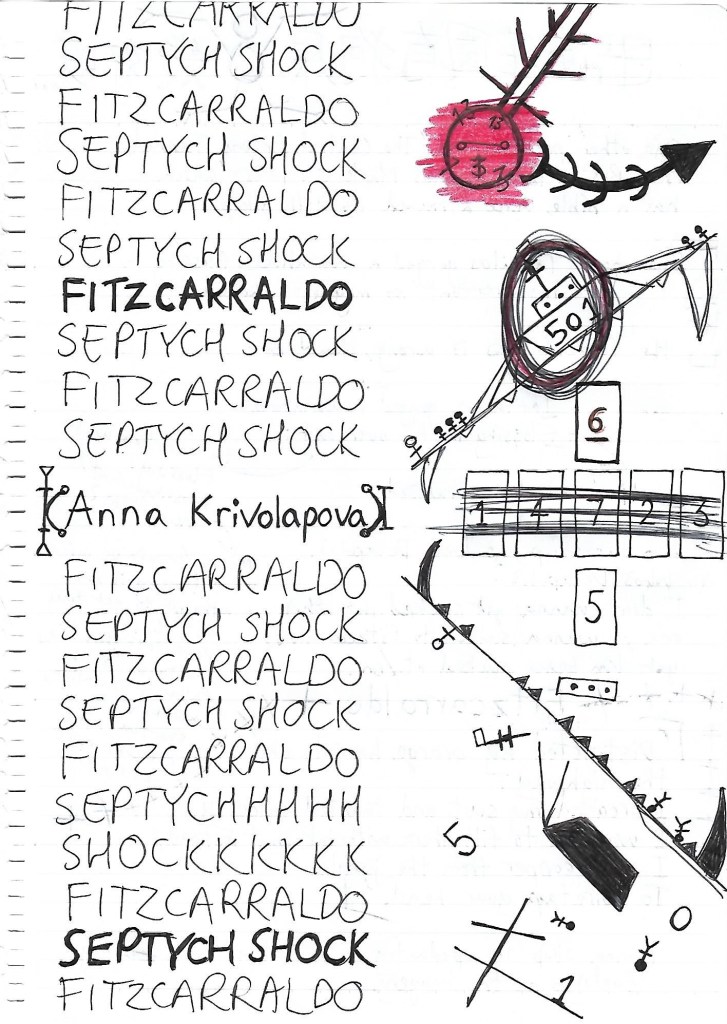 FITZCARRALDO
SEPTYCH SHOCK
FITZCARRALDO
SEPTYCH SHOCK
FITZCARRALDO
SEPTYCH SHOCK
FITZCARRALDO
SEPTYCH SHOCK
FITZCARRALDO
SEPTYCH SHOCK
(Anna Krivolapova)
FITZCARRALDO
SEPTYCH SHOCK
FITZCARRALDO
SEPTYCH SHOCK
FITZCARRALDO
SEPTYCHHHHHH
SHOCKKKKKKK
FITZCARRALDO
SEPTYCH SHOCK
FITZCARRALDO
13
501
6
1 4 7 2 3
5
5
0
1